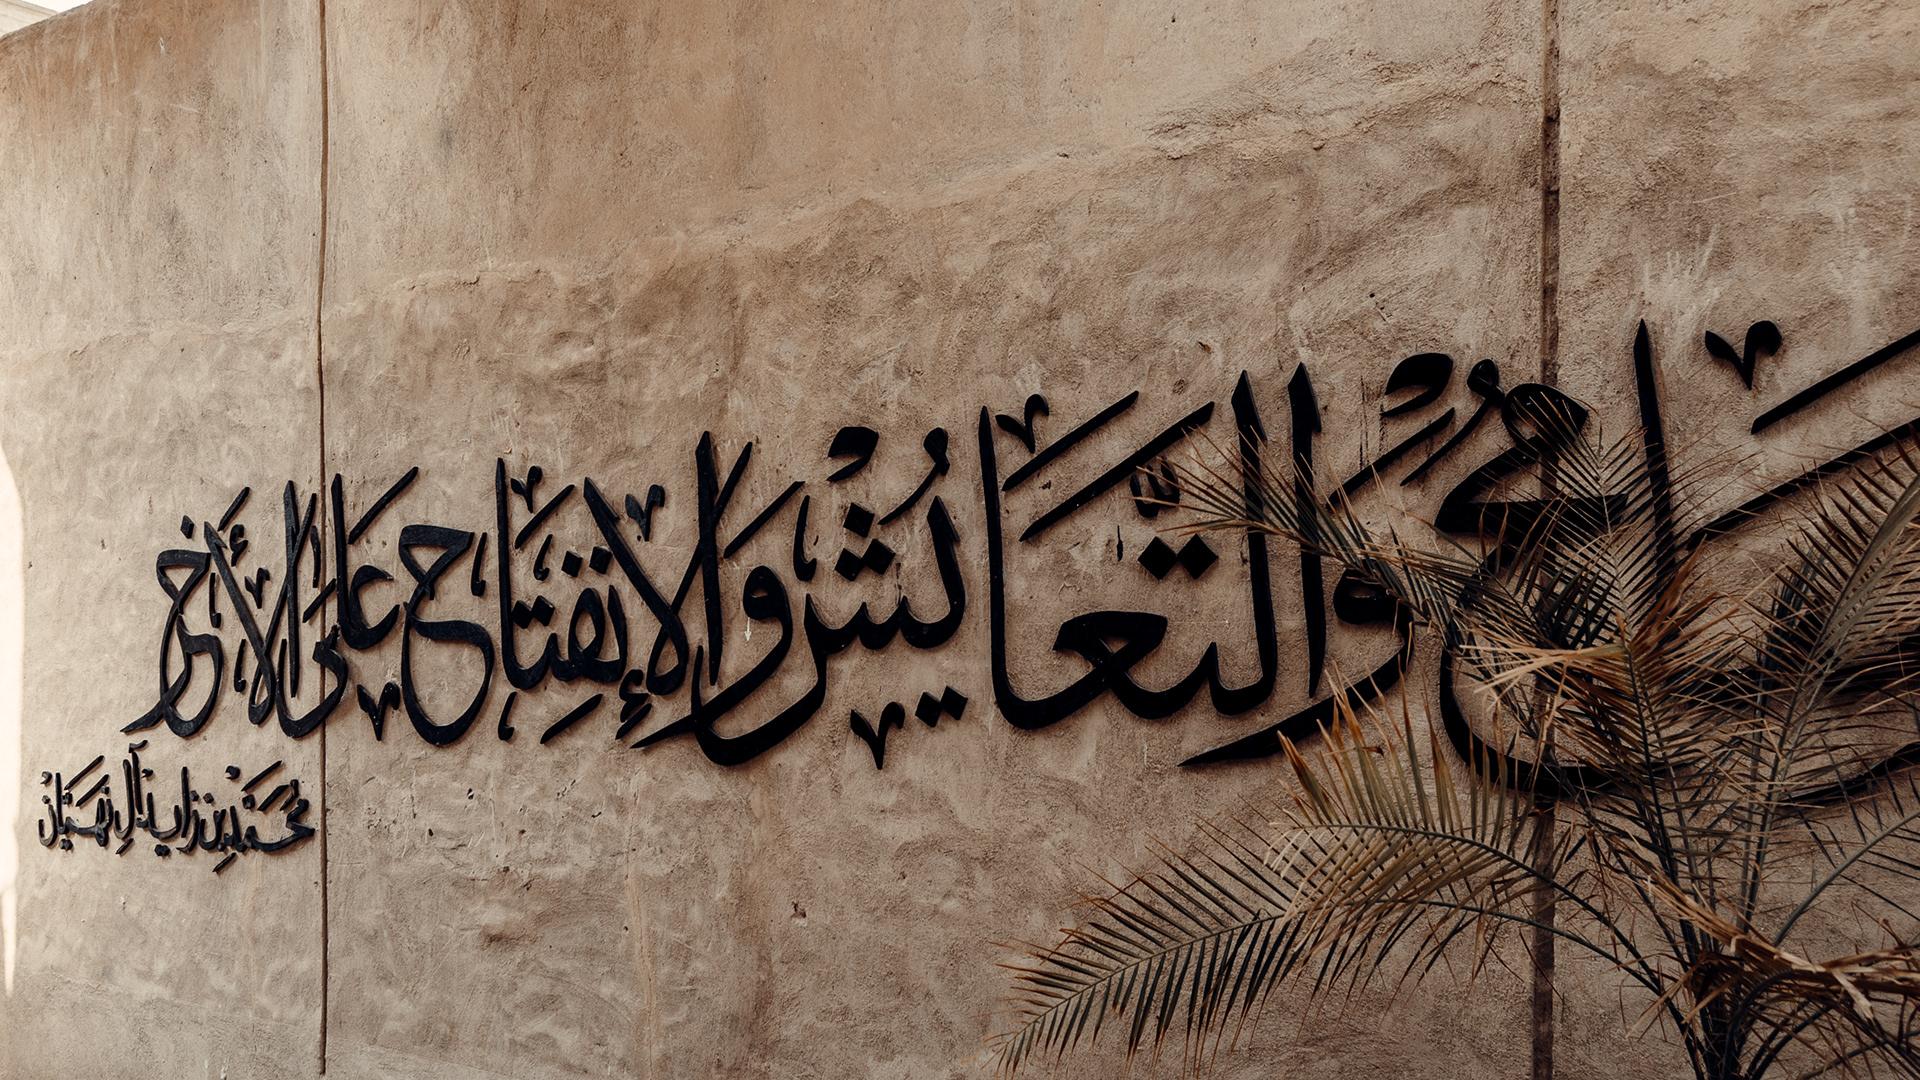 والتَّعَايُشِ وَالاِنْفِتَاحِ عَلَى الأَخَر
محمد بن زايد آل نهيان